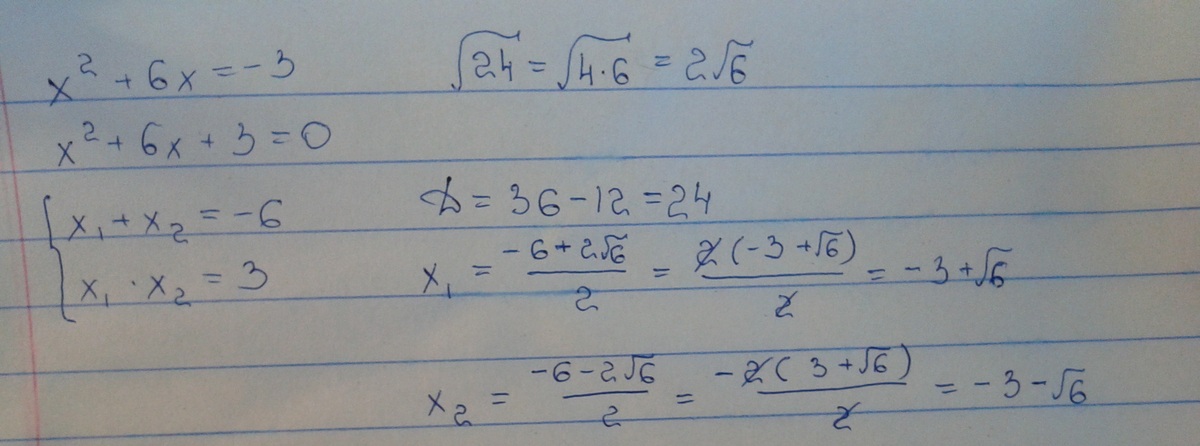 x² + 6x = -3
√24 = √4·6 = 2√6
x² + 6x + 3 = 0
{ x₁ + x₂ = -6
x₁ · x₂ = 3
D = 36 - 12 = 24
x₁ = (-6 + 2√6)/2 = 2(-3 + √6)/2 = -3 + √6
x₂ = (-6 - 2√6)/2 = -2(3 + √6)/2 = -3 - √6